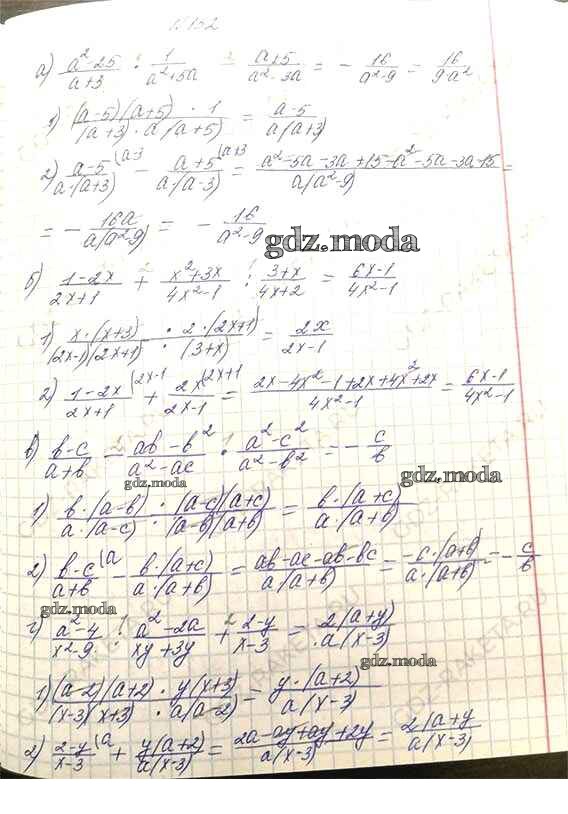 № 152
а) (a²-25)/(a+3) : 1/(a²+5a) - (a+5)/(a²-3a) = - 16/(a²-9) = 16/(9-a²)
1) ((a-5)(a+5) · 1)/((a+3) · a(a+5)) = (a-5)/(a(a+3))
2) (a-5)/(a·(a+3)) (a-3 - (a+5)/(a·(a-3)) (a+3 = (a²-5a-3a+15-a²-5a-3a-15)/(a(a²-9)) =
= - 16a/(a(a²-9)) = - 16/(a²-9)
gdz.moda
б) (1-2x)/(2x+1) + (x²+3x)/(4x²-1) : (3+x)/(4x+2) = (6x-1)/(4x²-1)
1) (x·(x+3))/((2x-1)(2x+1)) · (2·(2x+1))/((3+x)) = 2x/(2x-1)
2) (1-2x)/(2x+1) (2x-1 + 2x/(2x-1) (2x+1 = (2x-4x²-1+2x+4x²+2x)/(4x²-1) = (6x-1)/(4x²-1)
в) (в-c)/(a+в) - (aв-в²)/(a²-ac) · (a²-c²)/(a²-в²) = - c/в
gdz.moda
gdz.moda
1) (в·(a-в))/(a·(a-c)) · ((a-c)(a+c))/((a-в)(a+в)) = (в·(a+c))/(a·(a+в))
2) (в-c)/(a+в) (a - (в·(a+c))/(a·(a+в)) = (aв-ac-aв-вc)/(a(a+в)) = (-c·(a+в))/(a·(a+в)) = - c/в
gdz.moda
г) (a²-4)/(x²-9) : (a²-2a)/(xy+3y) + (2-y)/(x-3) = (2(a+y))/(a(x-3))
gdz.moda
1) ((a-2)(a+2) · y(x+3))/((x-3)(x+3) · a(a-2)) = (y·(a+2))/(a(x-3))
2) (2-y)/(x-3) (a + (y(a+2))/(a(x-3)) = (2a-ay+ay+2y)/(a(x-3)) = (2(a+y)/(a(x-3))